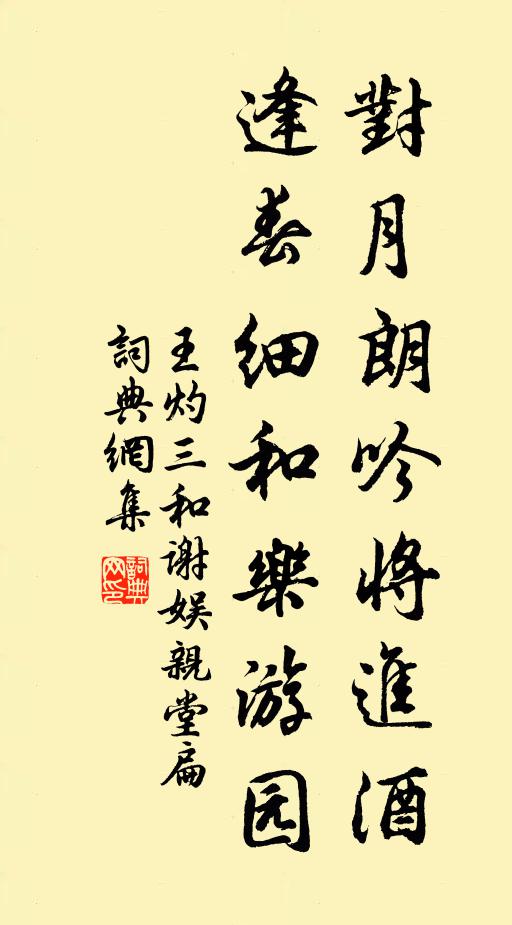 對月朗吟將進酒
逢春細和樂游园
王灼三和謝娱親堂扁
詞典網集
詞典网印